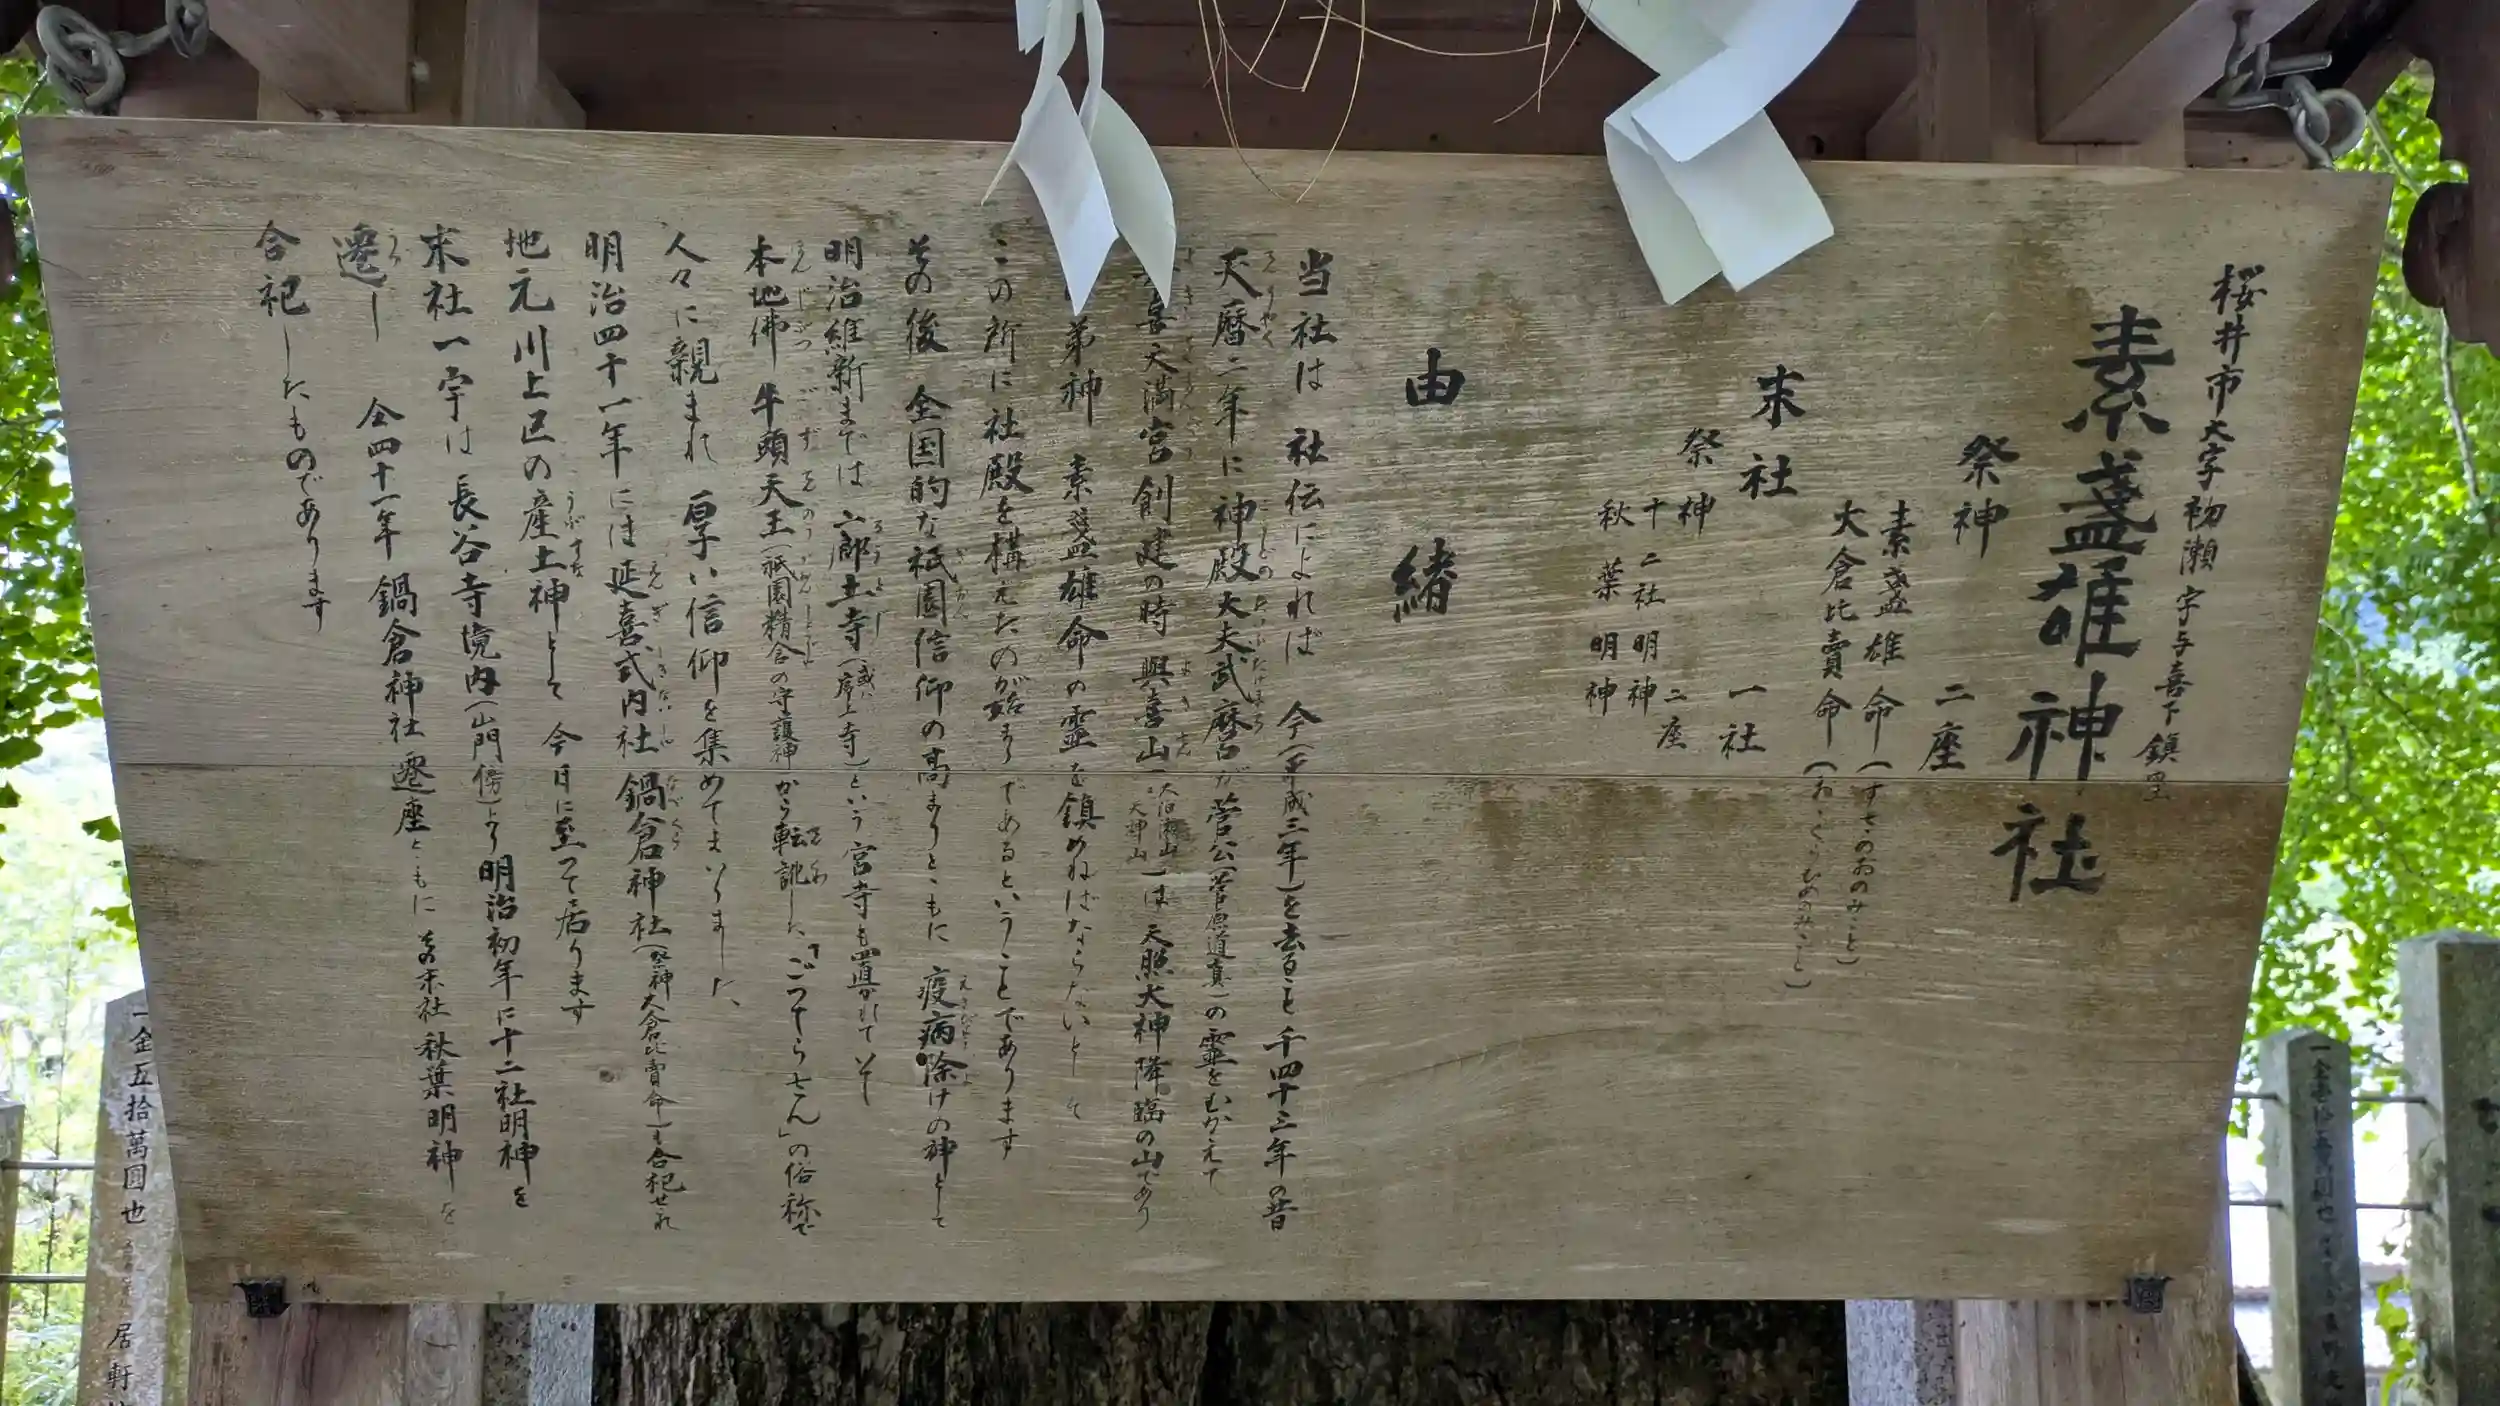 桜井市大字初瀬字与喜下鎮里
素盞雄神社
祭神 二座
素盞雄命(すさのおのみこと)
大倉比賣命(おゝくらひめのみこと)
末社 一社
祭神 二座
十二社明神
秋葉明神
由緒
当社は 社伝によれば 今(平成三年)を去ること 千四十三年の昔
天暦二年に神殿大夫武麿が菅公(菅原道真)の霊をむかえて
喜天満宮創建の時 與喜山(大泊瀬山 天神山)は 天照大神降臨の山であり
弟神 素盞雄命の霊を鎮めねばならないとして
この所に社殿を構えたのが始まりであるということであります
その後 全国的な祇園信仰の高まりとゝもに 疫病除けの神として
明治維新までは 廊土寺(或ハ廊上寺)という宮寺も置かれて
本地佛 牛頭天王(祇園精舎の守護神)から転訛した「ごってらさん」の俗称で
人々に親まれ 厚い信仰を集めてまいりました、
明治四十一年には延喜式内社 鍋倉神社(祭神大倉比賣命)も合祀せれ
地元 川上区の産土神として 今日に至って居ります
末社一宇は 長谷寺境内(山門傍)より 明治初年に十二社明神を
遷し 仝四十一年 鍋倉神社遷座とゝもに その末社 秋葉明神を
合祀したものであります
一金五拾萬圓也
居軒